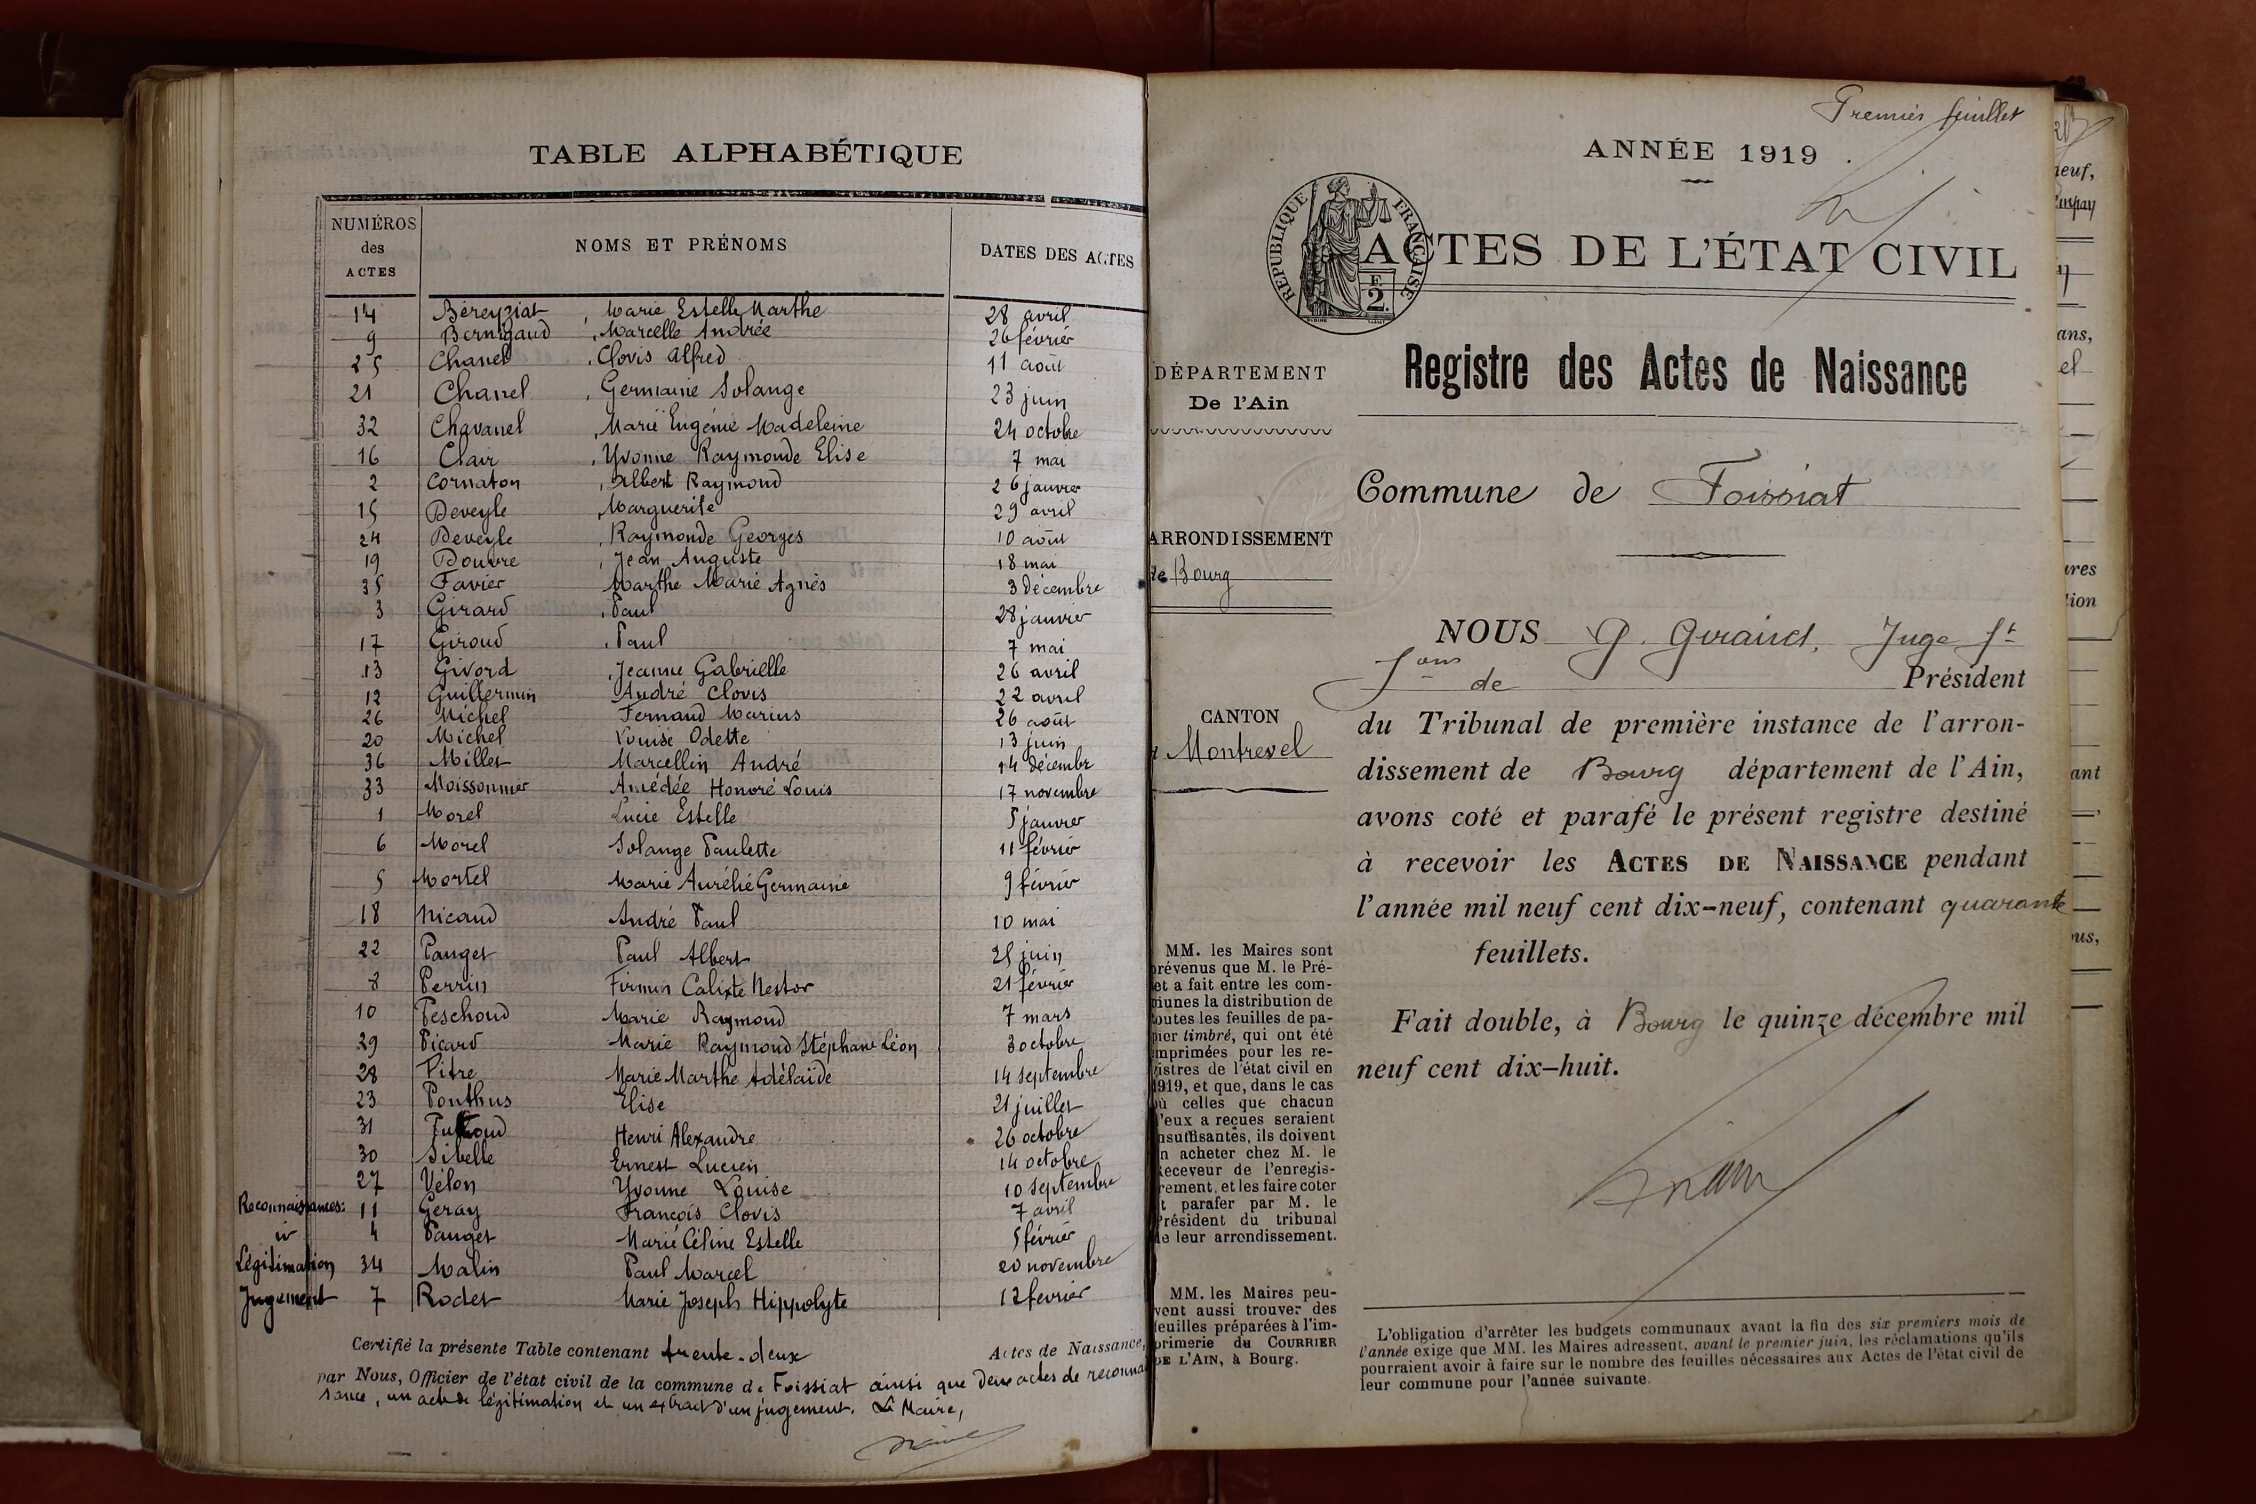 TABLE ALPHABÉTIQUE
NUMÉROS des ACTES NOMS ET PRÉNOMS DATES DES ACTES
14 Béreyziat, Marie Estelle Marthe 28 avril
9 Bernigaud, Marcelle Andrée 26 février
25 Chanel, Clovis Alfred 11 août
21 Chanel, Germaine Solange 23 juin
32 Chavanel, Marie Eugénie Madeleine 24 octobre
16 Clair, Yvonne Raymonde Elise 7 mai
2 Cornaton, Albert Raymond 26 janvier
15 Deveyle, Marguerite 29 avril
24 Deveyle, Raymonde Georges 10 août
19 Douvre, Jean Auguste 18 mai
35 Favier, Marthe Marie Agnès 3 décembre
3 Girard, Paul 28 janvier
17 Giroud, Paul 7 mai
13 Givord, Jeanne Gabrielle 26 avril
12 Guillermin, André Clovis 22 avril
26 Michel Fernand Marius 26 août
20 Michel Louise Odette 13 juin
36 Millet Marcellin André 14 décembre
33 Moissonnier Amédée Honoré Louis 17 novembre
1 Morel Lucie Estelle 5 janvier
6 Morel Solange Paulette 11 février
5 Mortel Marie Aurélie Germaine 9 février
18 Nicaud André Paul 10 mai
22 Pauget Paul Albert 25 juin
8 Perrin Firmin Calixte Nestor 21 février
10 Peschoud Marie Raymond 7 mars
29 Picard Marie Raymond Stéphane Léon 3 octobre
28 Pitre Marie Marthe Adélaïde 14 septembre
23 Ponthus Elise 21 juillet
31 Henri Alexandre 26 octobre
30 Sibelle Ernest Lucien 14 octobre
27 Vélon Yvonne Louise 10 septembre
Reconnaissances: 11 Geray François Clovis 7 avril
4 Pauget Marie Céline Estelle 5 février
Légitimation 34 Malin Paul Marcel 20 novembre
Jugement 7 Rodet Marie Joseph Hippolyte 12 février
Certifié la présente Table contenant trente-deux Actes de Naissance,
par Nous, Officier de l'état civil de la commune de Foissiat ainsi que deux actes de reconnais
sance, un acte de légitimation et un extrait d'un jugement. Le Maire,
Premier feuillet
ANNÉE 1919
RÉPUBLIQUE FRANÇAISE
2
ACTES DE L'ÉTAT CIVIL
Registre des Actes de Naissance
DÉPARTEMENT
De l'Ain
Commune de Foissiat
ARRONDISSEMENT
de Bourg
CANTON
Montrevel
NOUS G. Giraud, Juge St
de Président
du Tribunal de première instance de l'arron-
dissement de Bourg département de l'Ain,
avons coté et parafé le présent registre destiné
à recevoir les ACTES DE NAISSANCE pendant
l'année mil neuf cent dix-neuf, contenant quarante
feuillets.
Fait double, à Bourg le quinze décembre mil
neuf cent dix-huit.
MM. les Maires sont
prévenus que M. le Pré-
fet a fait entre les com-
munes la distribution de
toutes les feuilles de pa-
pier timbré, qui ont été
imprimées pour les re-
gistres de l'état civil en
1919, et que, dans le cas
où celles que chacun
d'eux a reçues seraient
insuffisantes, ils doivent
en acheter chez M. le
Receveur de l'enregis-
trement, et les faire coter
et parafer par M. le
Président du tribunal
de leur arrondissement.
MM. les Maires peu-
vent aussi trouver des
feuilles préparées à l'im-
primerie du COURRIER
DE L'AIN, à Bourg.
L'obligation d'arrêter les budgets communaux avant la fin des six premiers mois de
l'année exige que MM. les Maires adressent, avant le premier juin, les réclamations qu'ils
pourraient avoir à faire sur le nombre des feuilles nécessaires aux Actes de l'état civil de
leur commune pour l'année suivante.